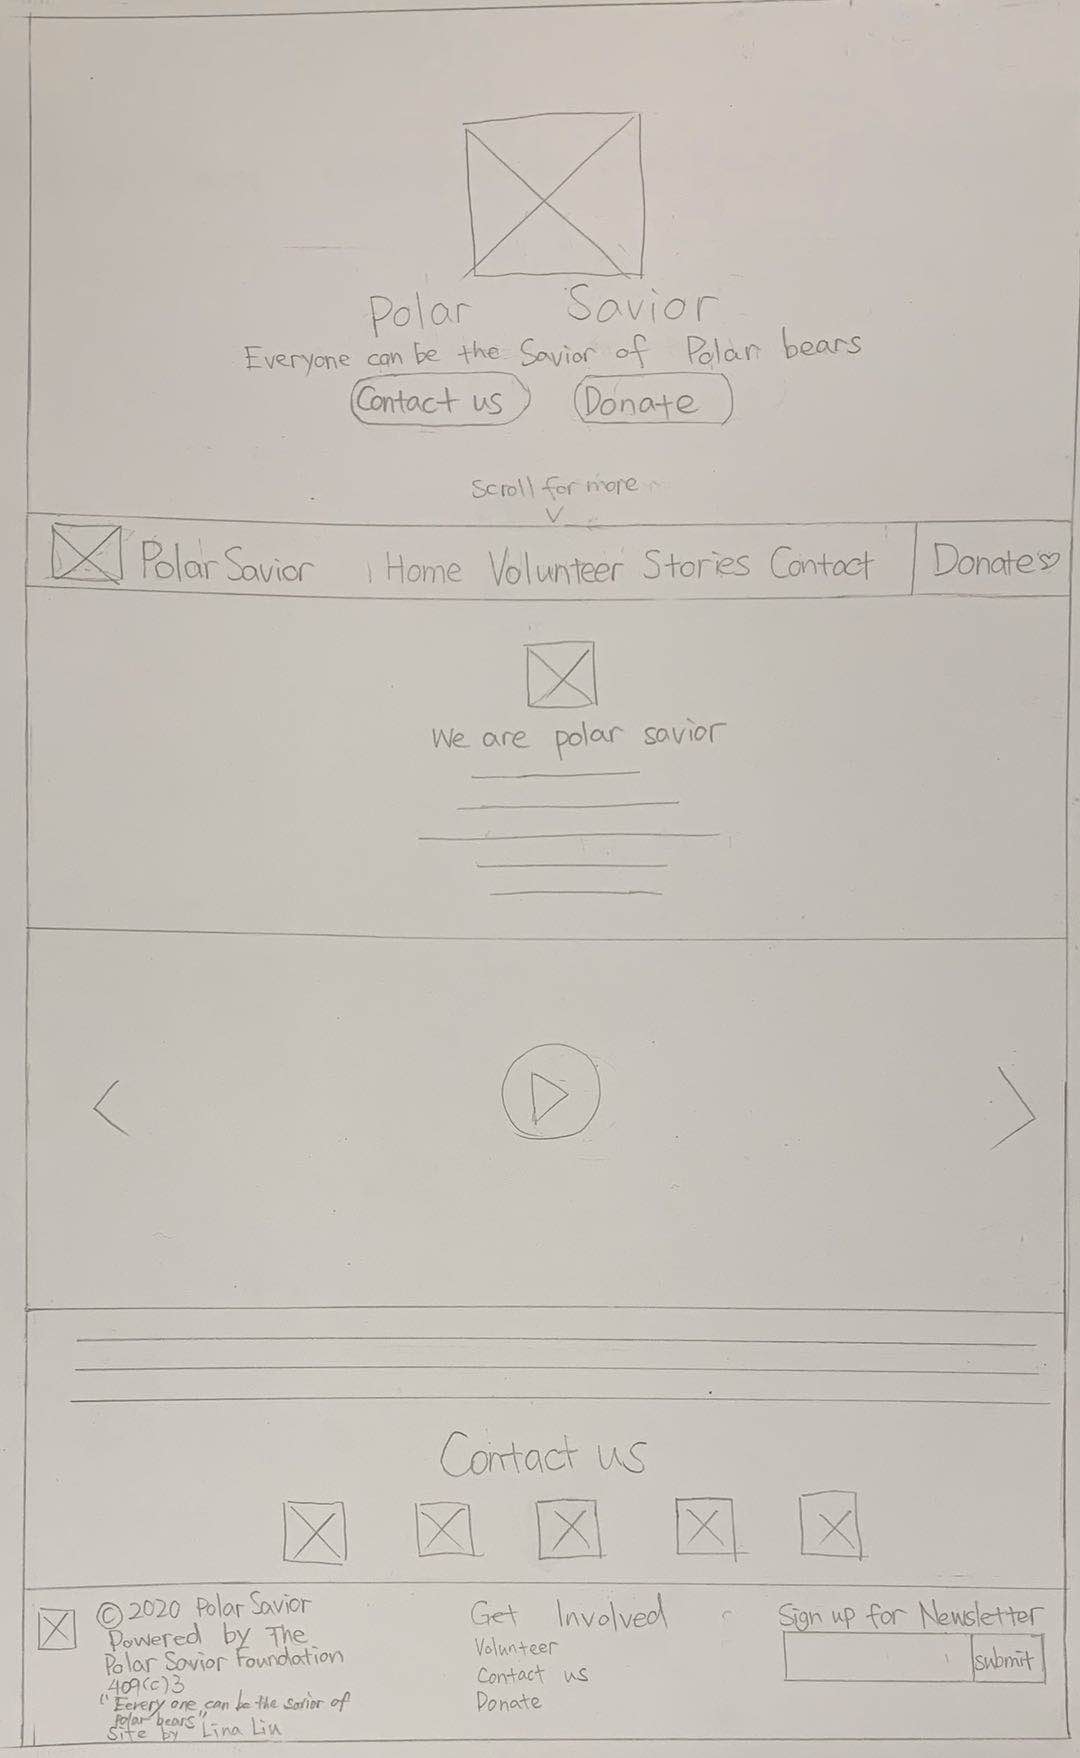 Polar Savior
Everyone can be the Savior of Polar bears
Contact us Donate
Scroll for more
Polar Savior Home Volunteer Stories Contact Donate♡
We are polar savior
Contact us
© 2020 Polar Savior
Powered by The
Polar Savior Foundation
409(c)3
"Eevery one can be the savior of
Polar bears"
Site by Lina Liu
Get Involved
Volunteer
Contact us
Donate
Sign up for Newsletter
submit